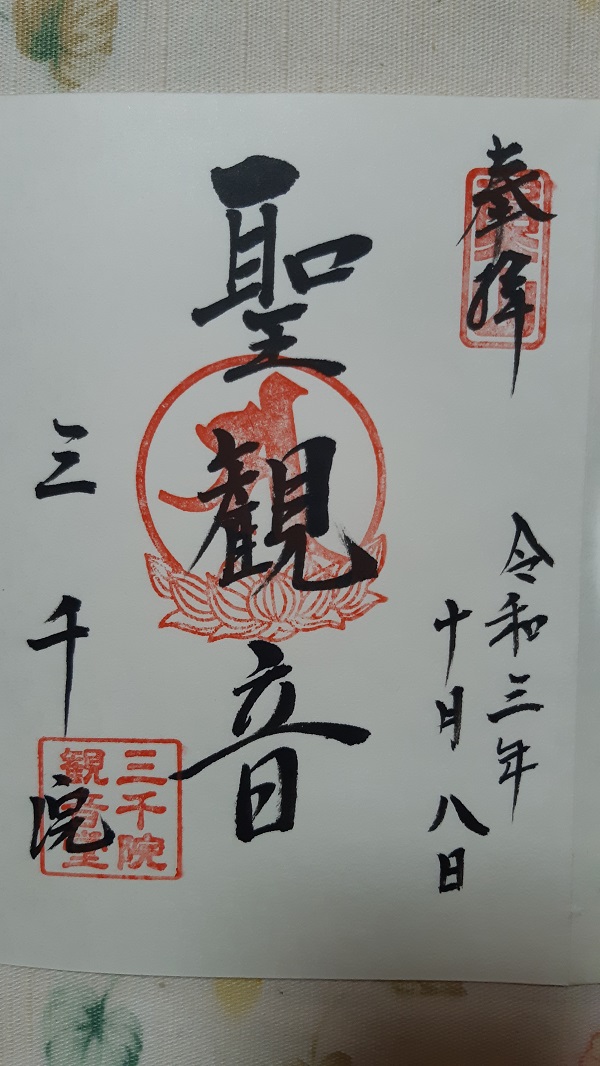 奉拝
令和三年
十月八日
聖観音
三千院
三千院
観音堂